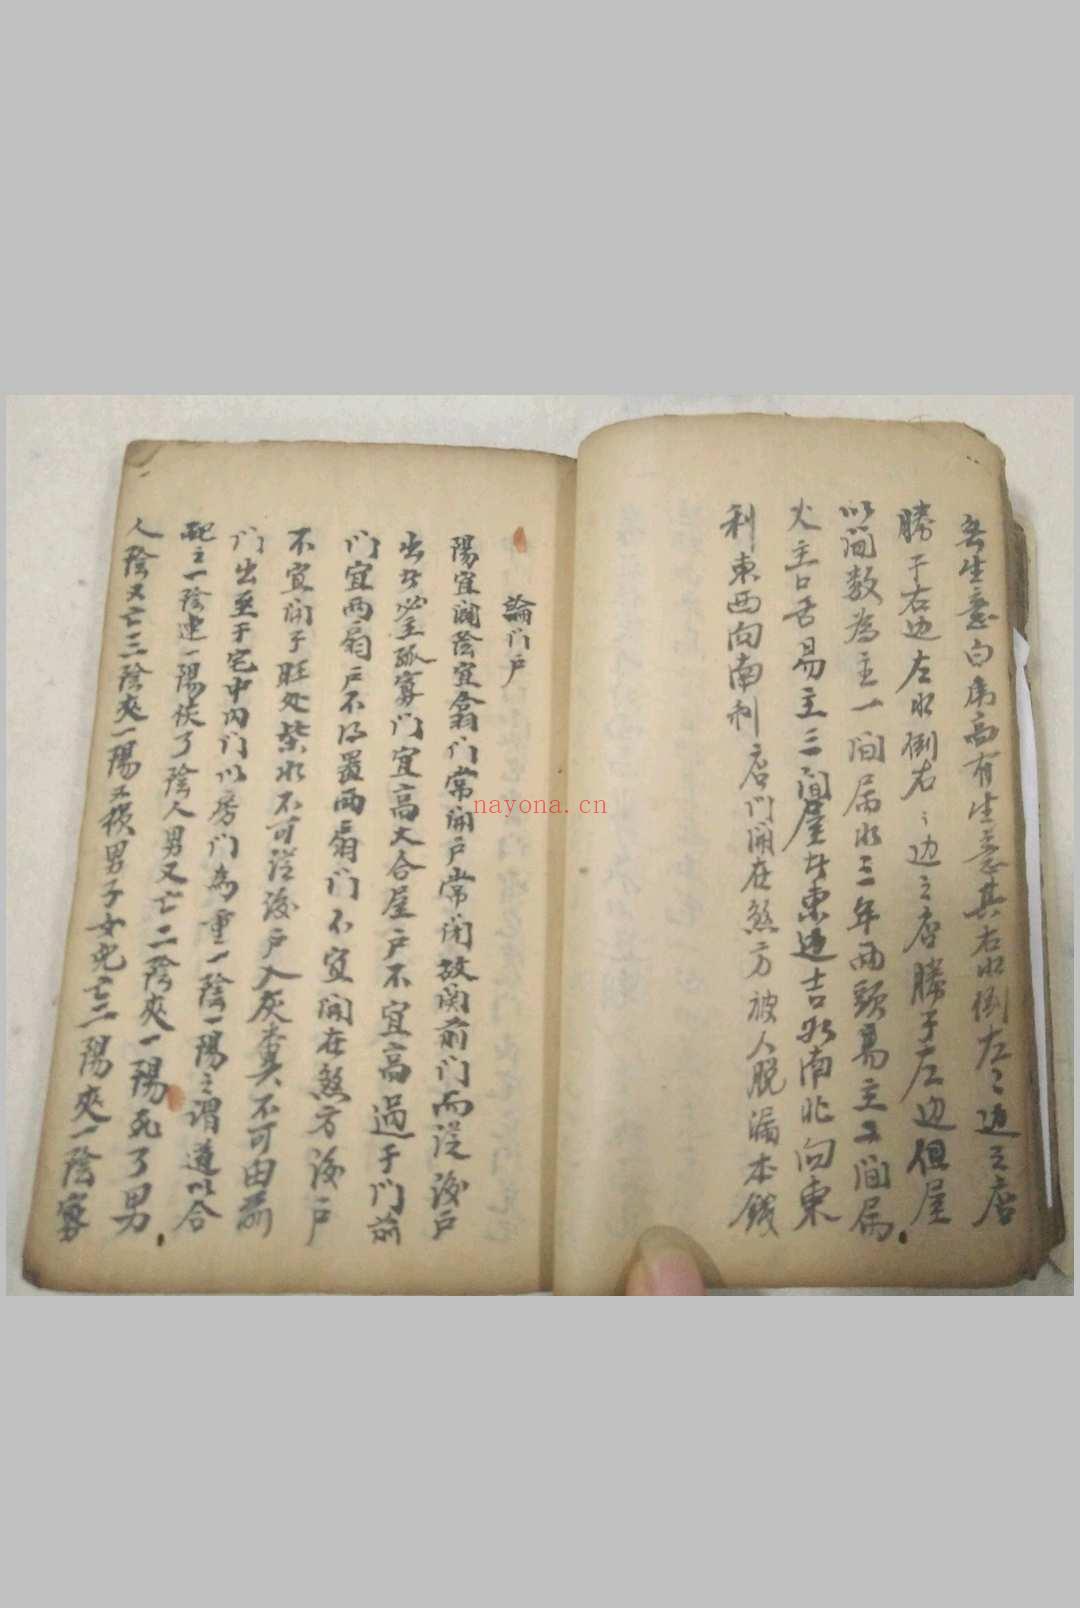 生意白虎高有生意其右水倒左〻边之店
勝于右边左水倒右〻边之店勝于左边但屋
以间数為主一间属水三年两頭易主二间属
火主口舌易主三间屋坐東边吉水南北向東
利東西向南利店门開在煞方被人脱漏本錢
論门户
陽宜闢陰宜翕门常開户常闭故関前门而従後户
出者必主孤寡门宜高大合屋户不宜高過于门前
门宜两扇户不得置两扇门不宜開在煞方後户
不宜開于旺处柴水不可従後户入灰糞不可由前
门出至于宅中内门以房门為重一陰一陽之谓道以合
配之一陰連一陽侯了陰人男又亡二陰夾一陽死了男
人陰又亡三陰夾一陽男子女兒亡二陽夾一陰寡
nayona.cn